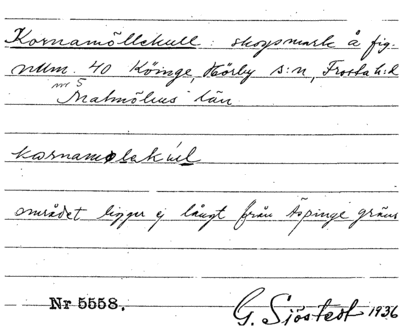 Kornamöllekull: skogsmark å fig.
num. 40 Köinge, Hörby s:n, Frosta h:d
nr 5
Malmöhus län
kornamolakul
området ligger ej långt från Äspinge gräns
Nr 5558. G. Sjöstedt 1936